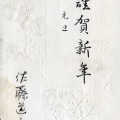 謹賀新年
元旦
佐藤